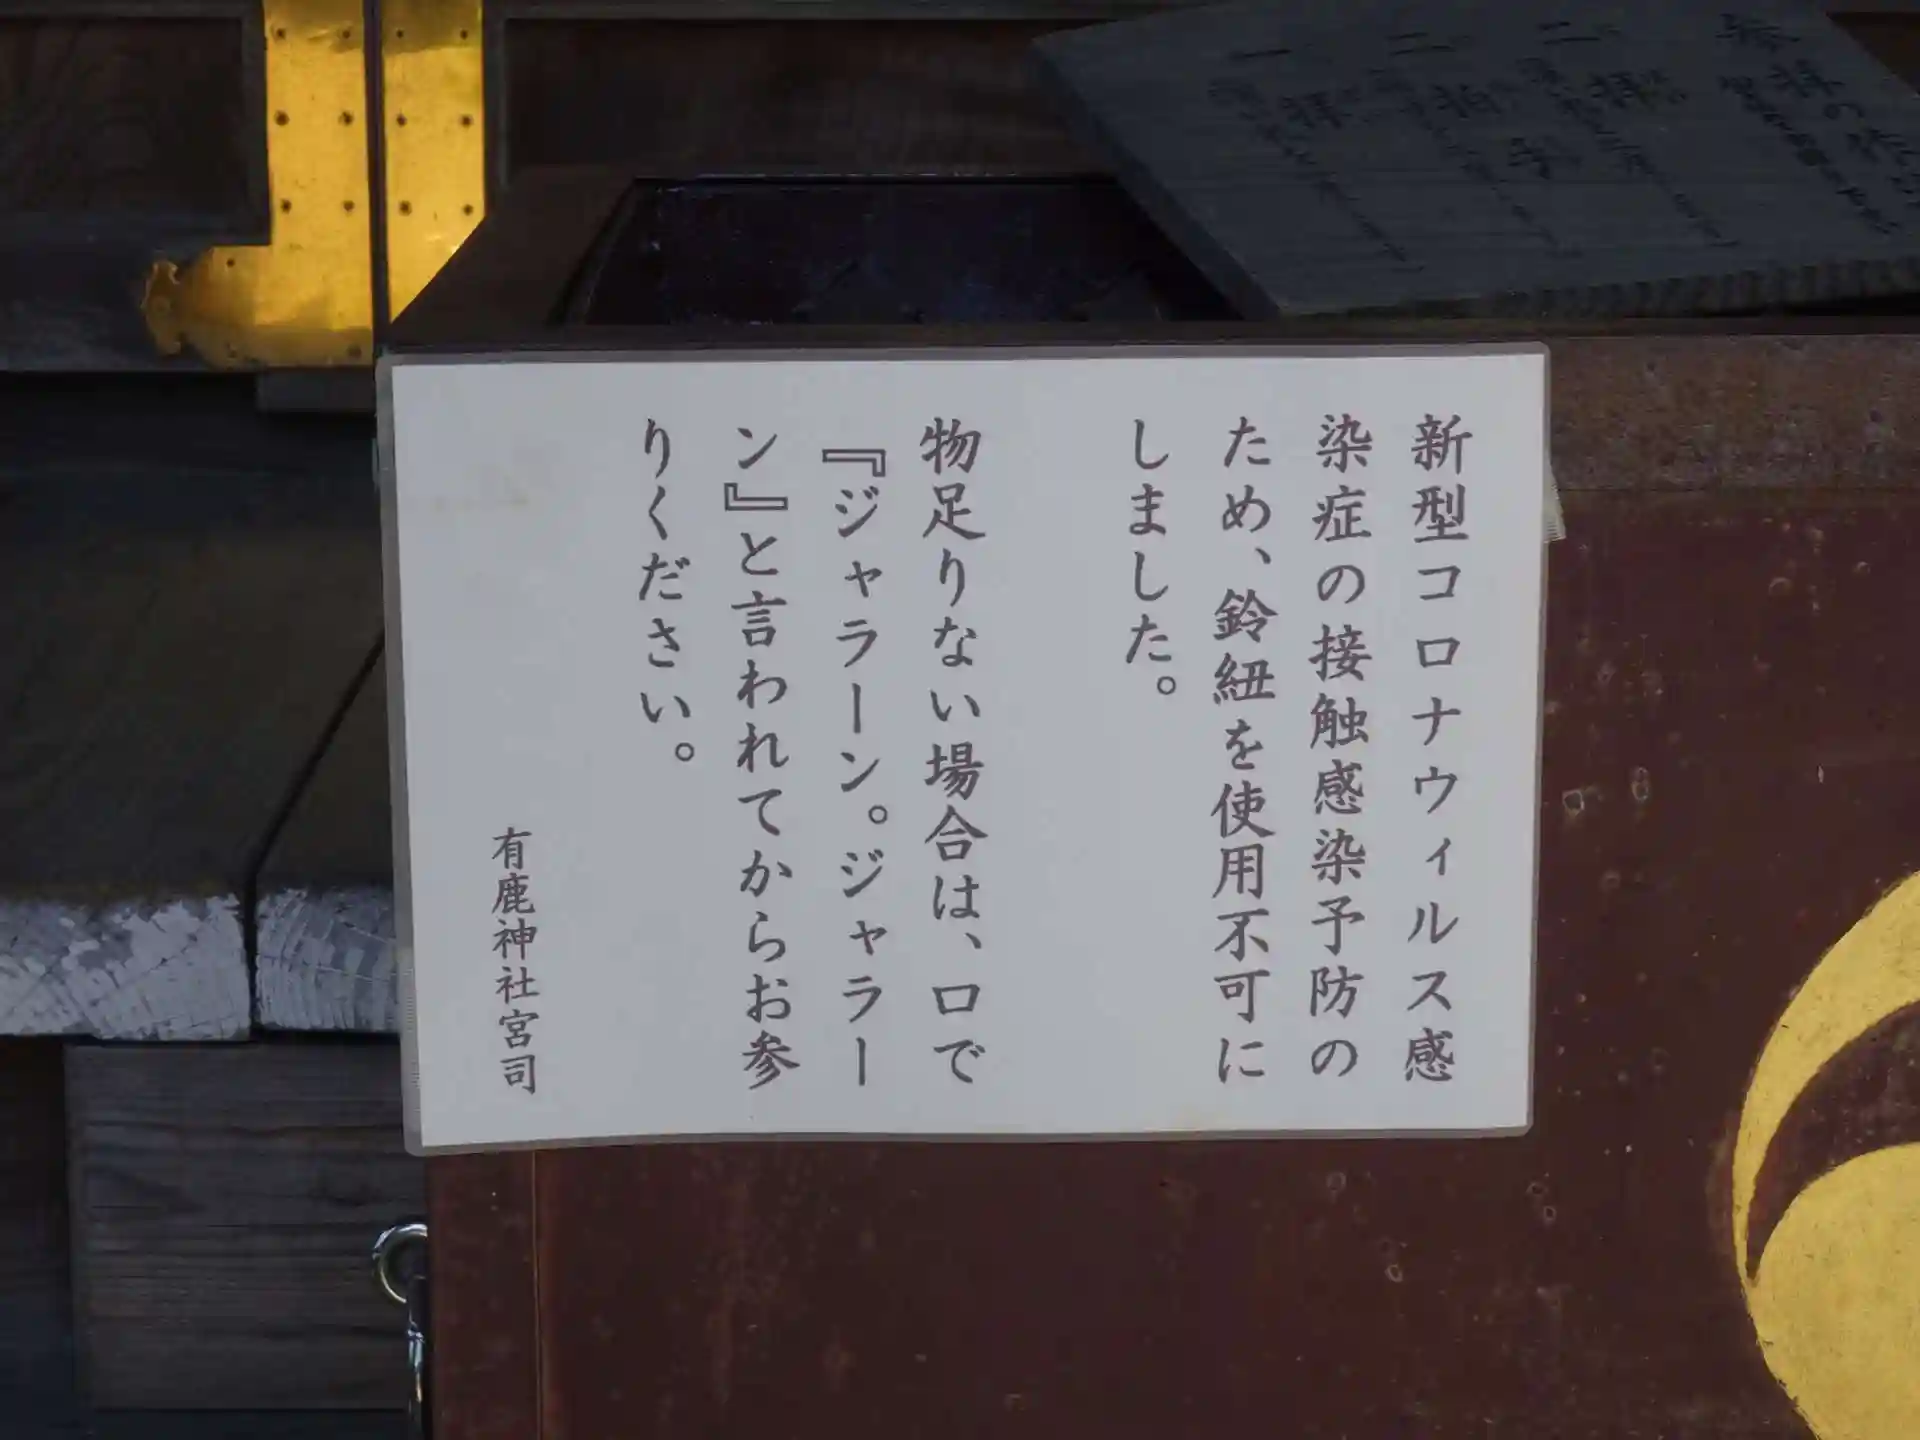 新型コロナウィルス感
染症の接触感染予防の
ため、鈴紐を使用不可に
しました。
物足りない場合は、口で
『ジャラーン。ジャラー
ン』と言われてからお参
りください。
有鹿神社宮司
二拝
二拍手
一拝